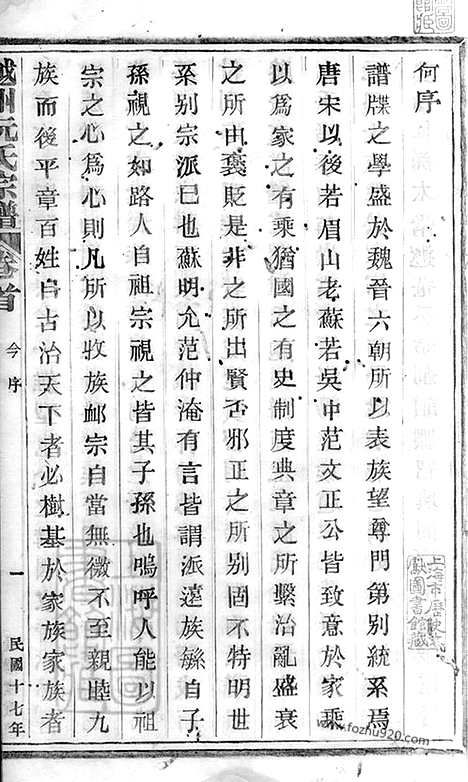 何序
譜牒之學盛於魏晉六朝所以表族望尊門第別統系焉
唐宋以後若眉山老蘇若吳中范文正公皆致意於家乘
以爲家之有乘猶國之有史制度典章之所繫治亂盛衰
之所由襃貶是非之所出賢否邪正之所別固不特明世
系別宗派已也蘇明允范仲淹有言皆謂派遠族繇自子
孫視之如路人自祖宗視之皆其子孫也嗚呼人能以祖
宗之心爲心則凡所以收族䘏宗自當無微不至親睦九
族而後平章百姓自古治天下者必樹基於家族家族者
越州阮氏宗譜
卷首
今序
一
民國十七年
上海市歷史
獻圖書館藏
www.fozhu920.com